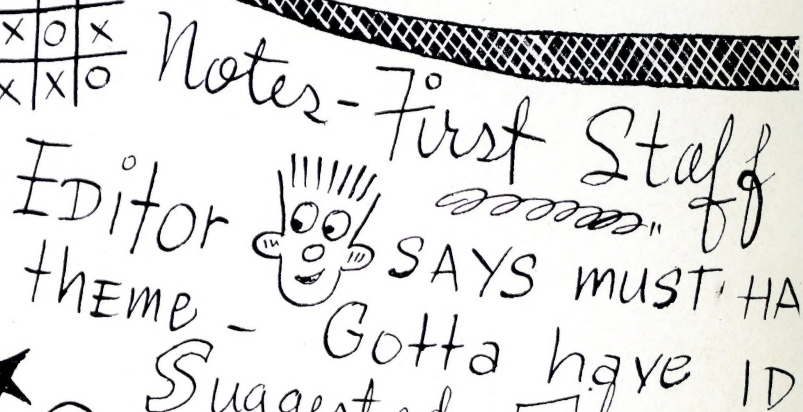 X O X
X X O
Notes - First Staff
Editor SAYS must HA
thEme - Gotta have ID
Suggested